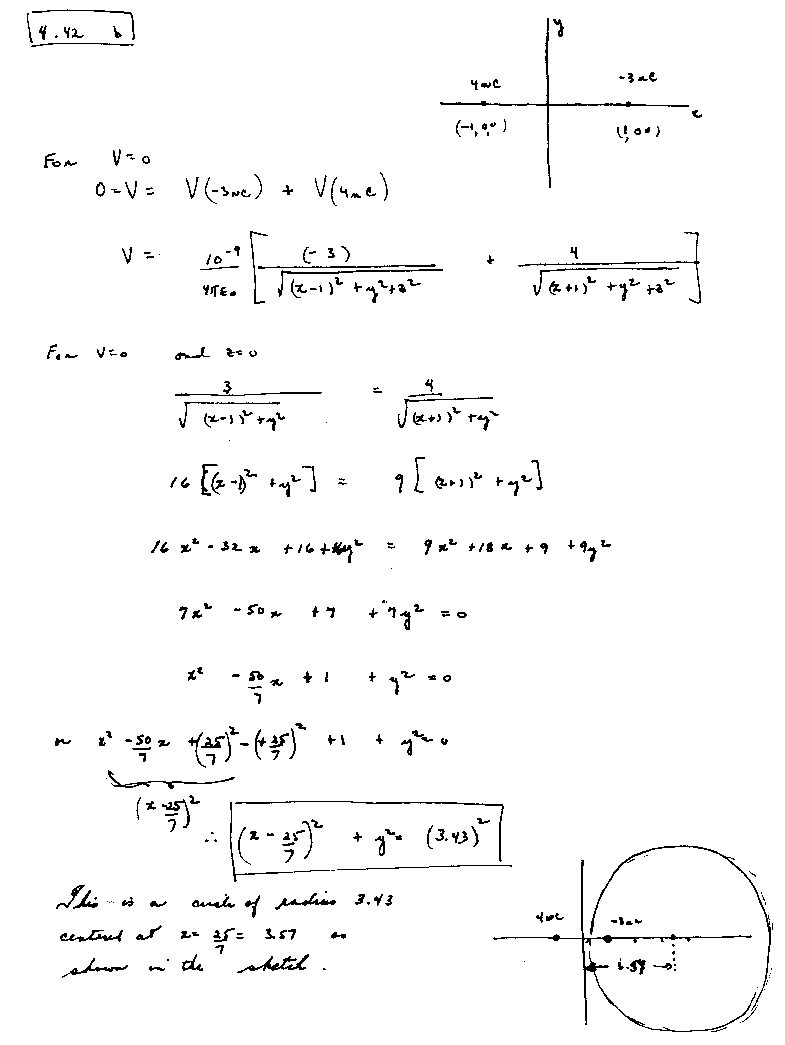 4.42 b
y
4nC
-3nC
x
(-1,0,0)
(1,0,0)
For V=0
0=V= V(-3nC) + V(4nC)
V = 10^-9/4πε₀ [ (-3)/√((x-1)²+y²+z²) + 4/√((x+1)²+y²+z²) ]
For V=0 and z=0
3/√((x-1)²+y²) = 4/√((x+1)²+y²)
16[(x-1)²+y²] = 9[(x+1)²+y²]
16x²-32x+16+16y² = 9x²+18x+9+9y²
7x² -50x +7 +7y² =0
x² -50/7 x +1 + y² =0
or x² -50/7 x +(25/7)² -(+25/7)² +1 + y²=0
(x-25/7)²
∴ (x-25/7)² + y² = (3.43)²
This is a circle of radius 3.43
centered at x= 25/7 = 3.57 as
shown in the sketch.
4nC
-3nC
3.57